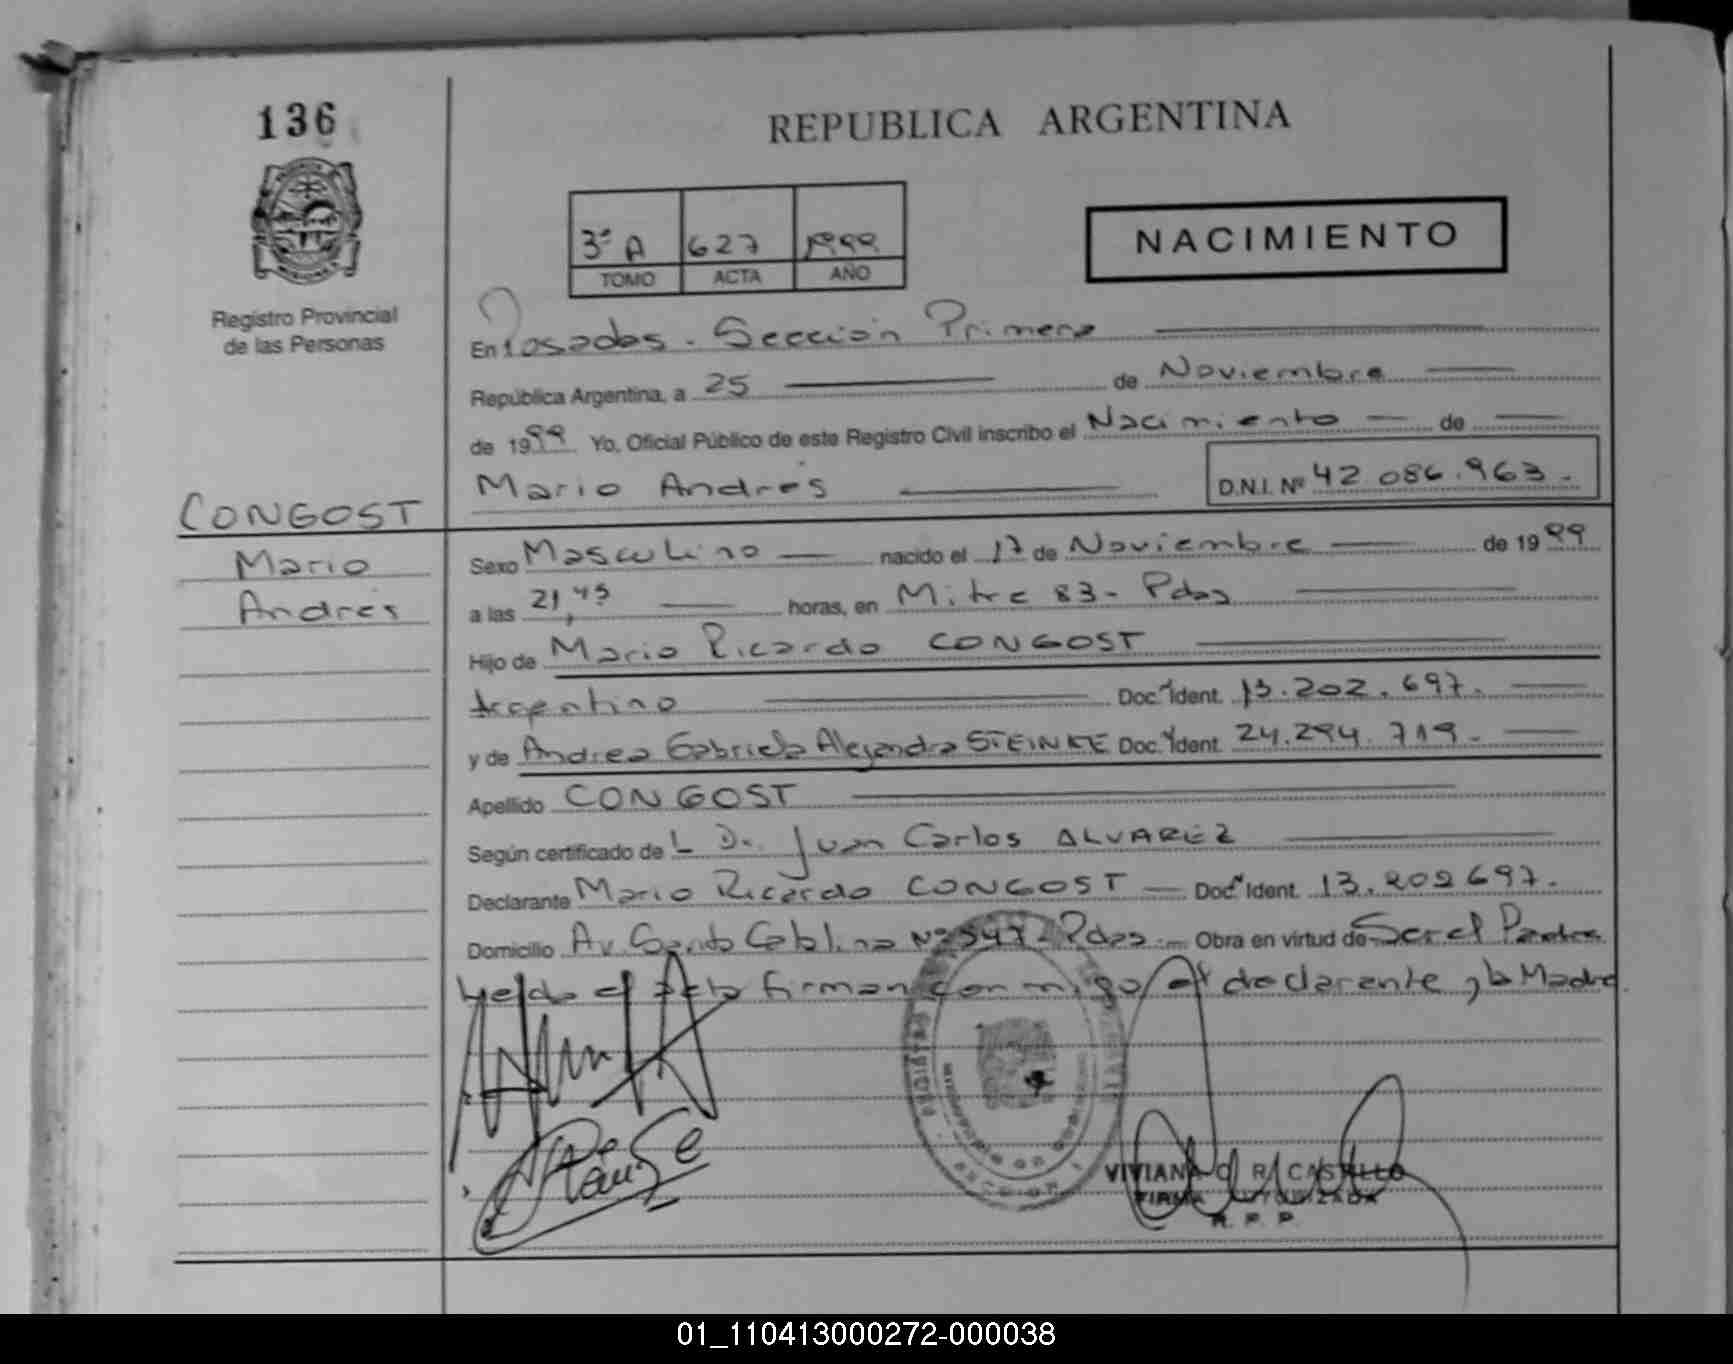 136
REPUBLICA ARGENTINA
3ª A 627 1999
TOMO ACTA AÑO
NACIMIENTO
Registro Provincial
de las Personas
En Posadas - Sección Primera
República Argentina, a 25 de Noviembre
de 1999 Yo, Oficial Público de este Registro Civil inscribo el Nacimiento de
Mario Andrés D.N.I. Nº 42.086.963.-
CONGOST
Mario
Andrés
Sexo Masculino nacido el 17 de Noviembre de 1999
a las 21,45 horas, en Mitre 83 - Pdas
Hijo de Mario Ricardo CONGOST
Argentino Doc. Ident. 13.202.697.
y de Andrea Gabriela Alejandra STEINKE Doc. Ident. 24.294.719.
Apellido CONGOST
Según certificado de L Dr. Juan Carlos ALVAREZ
Declarante Mario Ricardo CONGOST Doc. Ident. 13.202697.
Domicilio Av. Santa Catalina Nº - Pdas Obra en virtud de Ser el Padre
Leida el Acta firman con migo el declarante y la Madre
VIVIANA C. R. CASTILLO
FIRMA AUTORIZADA
R. P. P.
01_110413000272-000038